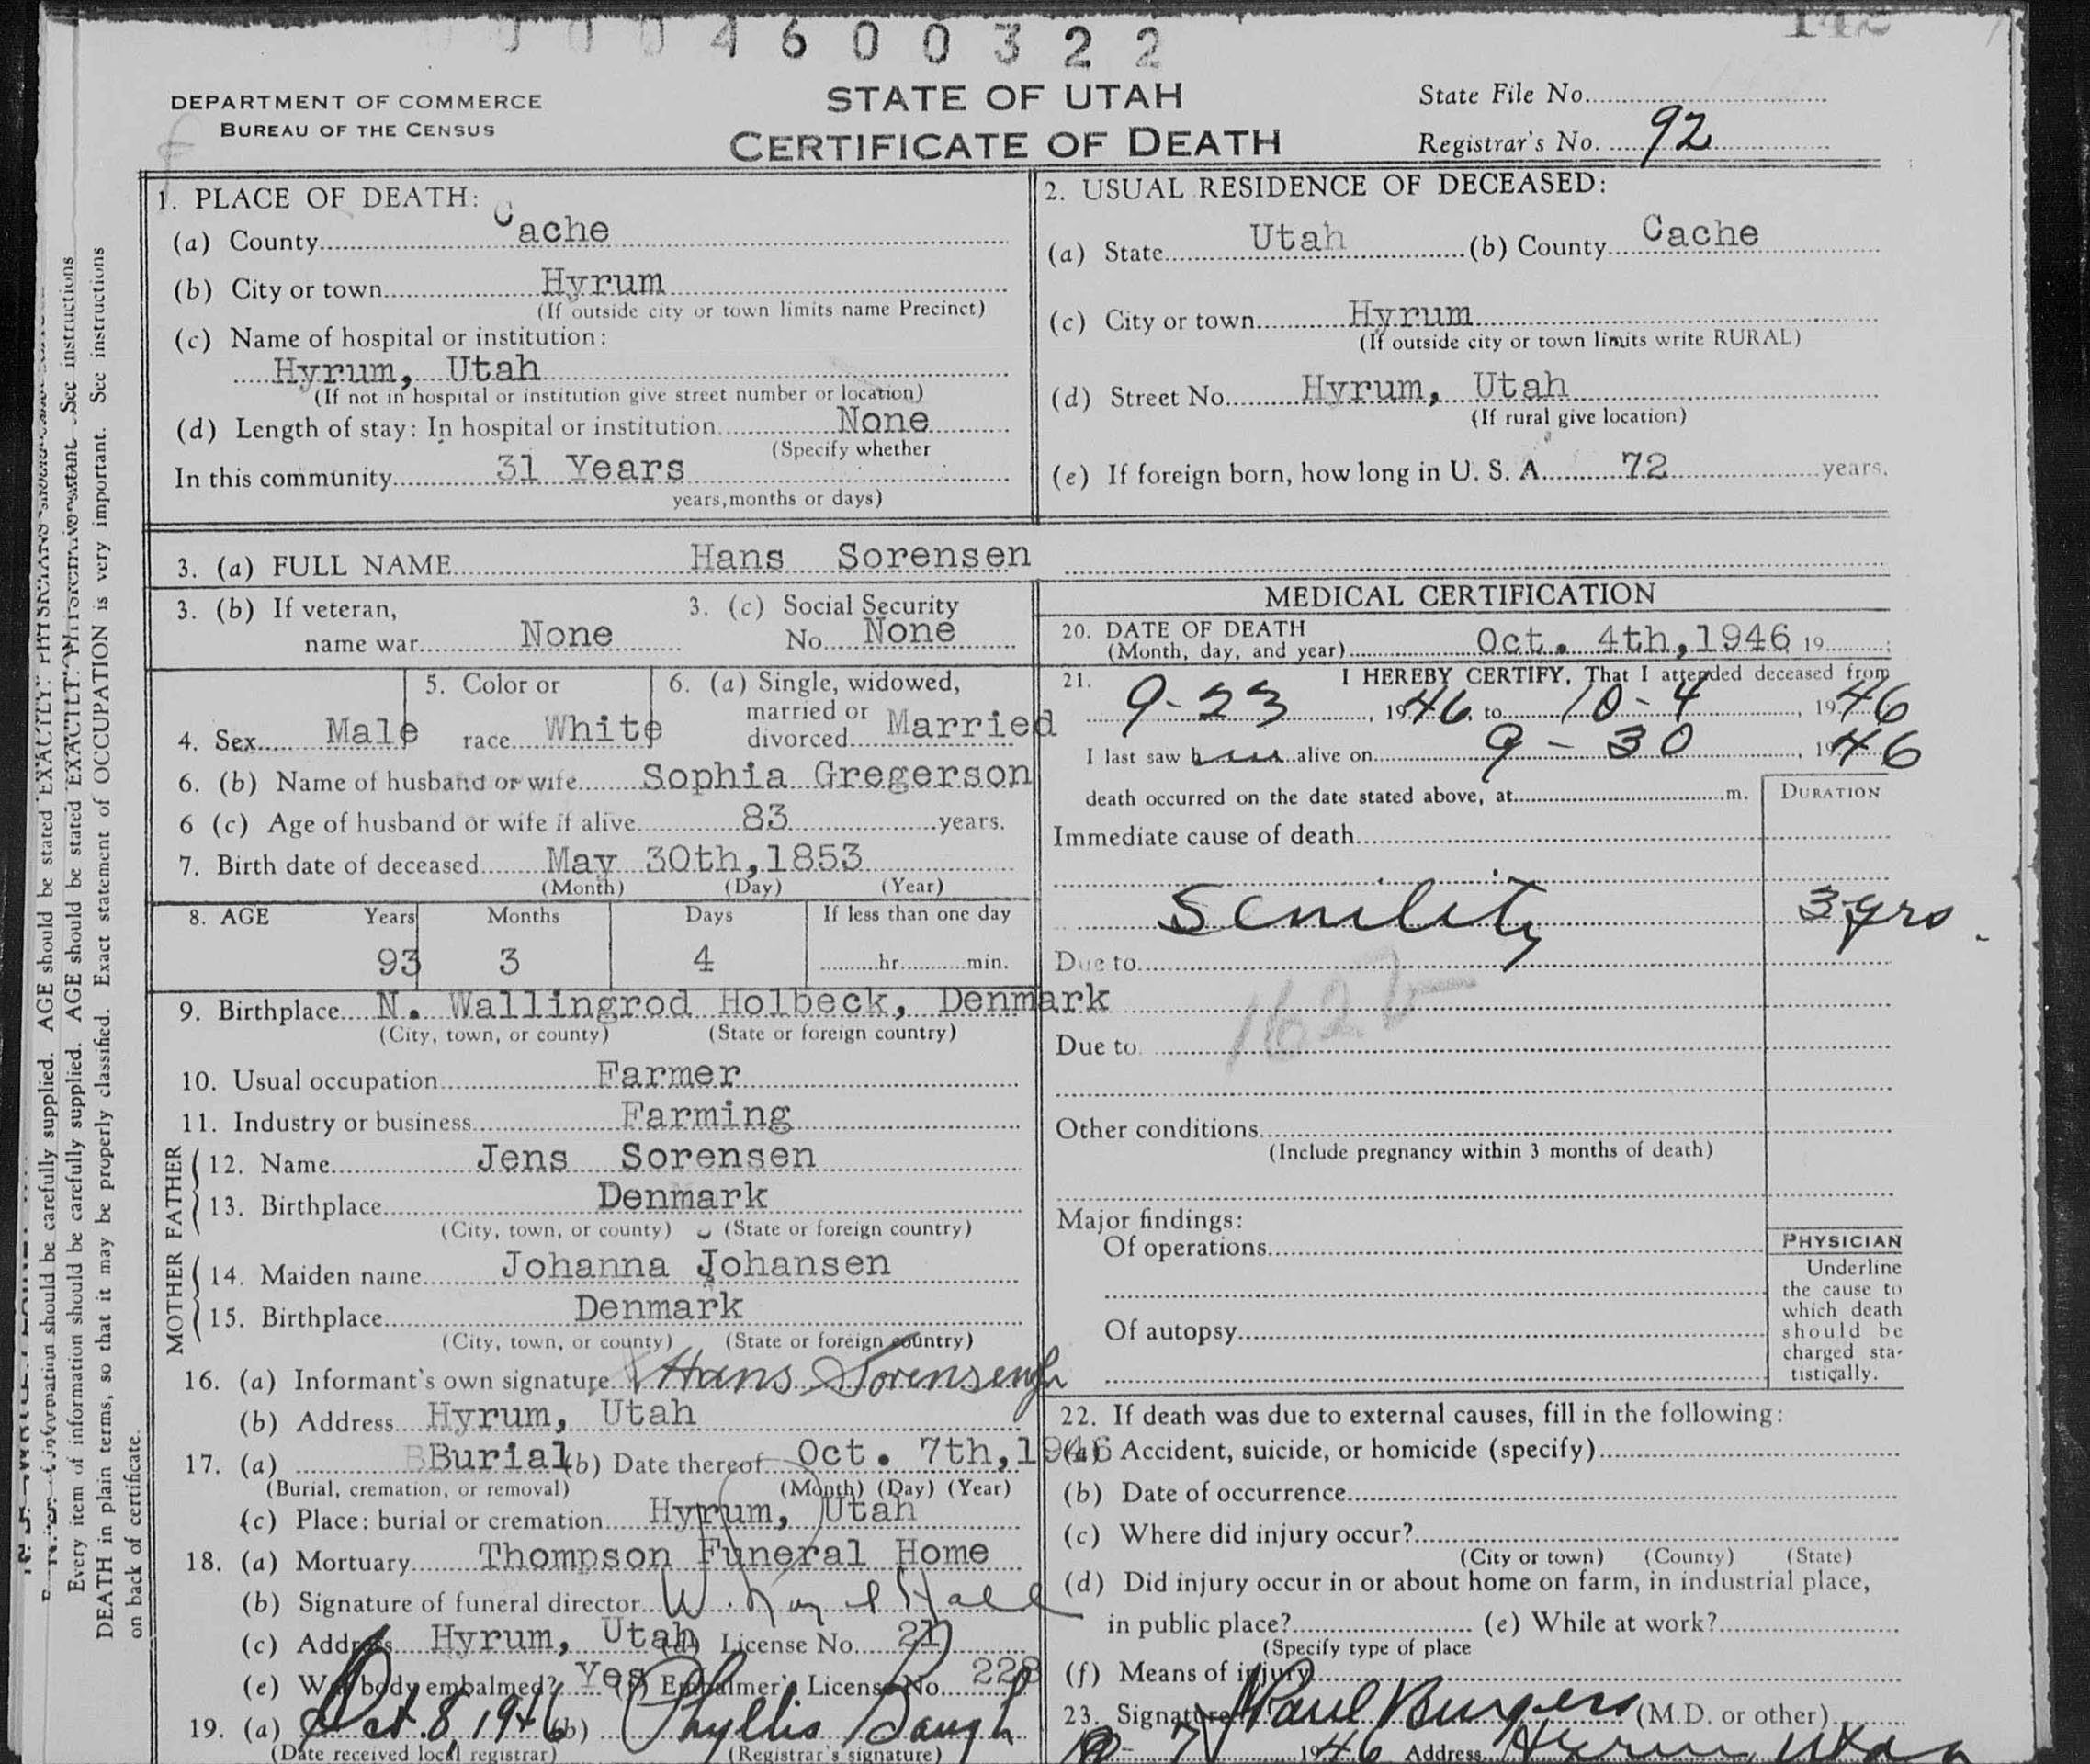 4 6 0 0 3 2 2
142
DEPARTMENT OF COMMERCE
BUREAU OF THE CENSUS
STATE OF UTAH
CERTIFICATE OF DEATH
State File No.
Registrar's No. 92
1. PLACE OF DEATH:
(a) County Cache
(b) City or town Hyrum
(If outside city or town limits name Precinct)
(c) Name of hospital or institution:
Hyrum, Utah
(If not in hospital or institution give street number or location)
(d) Length of stay: In hospital or institution None
(Specify whether
In this community 31 Years
years, months or days)
2. USUAL RESIDENCE OF DECEASED:
(a) State Utah (b) County Cache
(c) City or town Hyrum
(If outside city or town limits write RURAL)
(d) Street No. Hyrum, Utah
(If rural give location)
(e) If foreign born, how long in U. S. A. 72 years.
3. (a) FULL NAME Hans Sorensen
3. (b) If veteran,
name war None
3. (c) Social Security
No. None
4. Sex Male
5. Color or
race White
6. (a) Single, widowed,
married or
divorced Married
6. (b) Name of husband or wife Sophia Gregerson
6 (c) Age of husband or wife if alive 83 years.
7. Birth date of deceased May 30th, 1853
(Month) (Day) (Year)
8. AGE Years Months Days If less than one day
93 3 4 hr. min.
9. Birthplace N. Wallingrod Holbeck, Denmark
(City, town, or county) (State or foreign country)
10. Usual occupation Farmer
11. Industry or business Farming
FATHER
12. Name Jens Sorensen
13. Birthplace Denmark
(City, town, or county) (State or foreign country)
MOTHER
14. Maiden name Johanna Johansen
15. Birthplace Denmark
(City, town, or county) (State or foreign country)
16. (a) Informant's own signature Hans Sorensen
(b) Address Hyrum, Utah
17. (a) Burial (b) Date thereof Oct. 7th, 1946
(Burial, cremation, or removal) (Month) (Day) (Year)
(c) Place: burial or cremation Hyrum, Utah
18. (a) Mortuary Thompson Funeral Home
(b) Signature of funeral director W. Hall
(c) Address Hyrum, Utah (d) License No. 21
(e) Was body embalmed? Yes (f) Embalmer's License No. 228
19. (a) Oct. 8, 1946 (b) Phyllis Baugh
(Date received local registrar) (Registrar's signature)
MEDICAL CERTIFICATION
20. DATE OF DEATH
(Month, day, and year) Oct. 4th, 1946 19 ;
21. I HEREBY CERTIFY, That I attended deceased from
9-23, 1946, to 10-4, 1946
I last saw him alive on 9-30, 1946
death occurred on the date stated above, at m.
DURATION
Immediate cause of death
Senility 3 yrs.
Due to
162b
Due to
Other conditions
(Include pregnancy within 3 months of death)
Major findings:
Of operations
Of autopsy
PHYSICIAN
Underline
the cause to
which death
should be
charged sta-
tistically.
22. If death was due to external causes, fill in the following:
(a) Accident, suicide, or homicide (specify)
(b) Date of occurrence
(c) Where did injury occur?
(City or town) (County) (State)
(d) Did injury occur in or about home on farm, in industrial place,
in public place? (e) While at work?
(Specify type of place
(f) Means of injury
23. Signature Paul Burgess (M.D. or other)
10-7 1946 Address Hyrum Utah
AGE should be stated EXACTLY.
Every item of information should be carefully supplied. AGE should be stated EXACTLY. See instructions
DEATH in plain terms, so that it may be properly classified. Exact statement of OCCUPATION is very important. See instructions
on back of certificate.